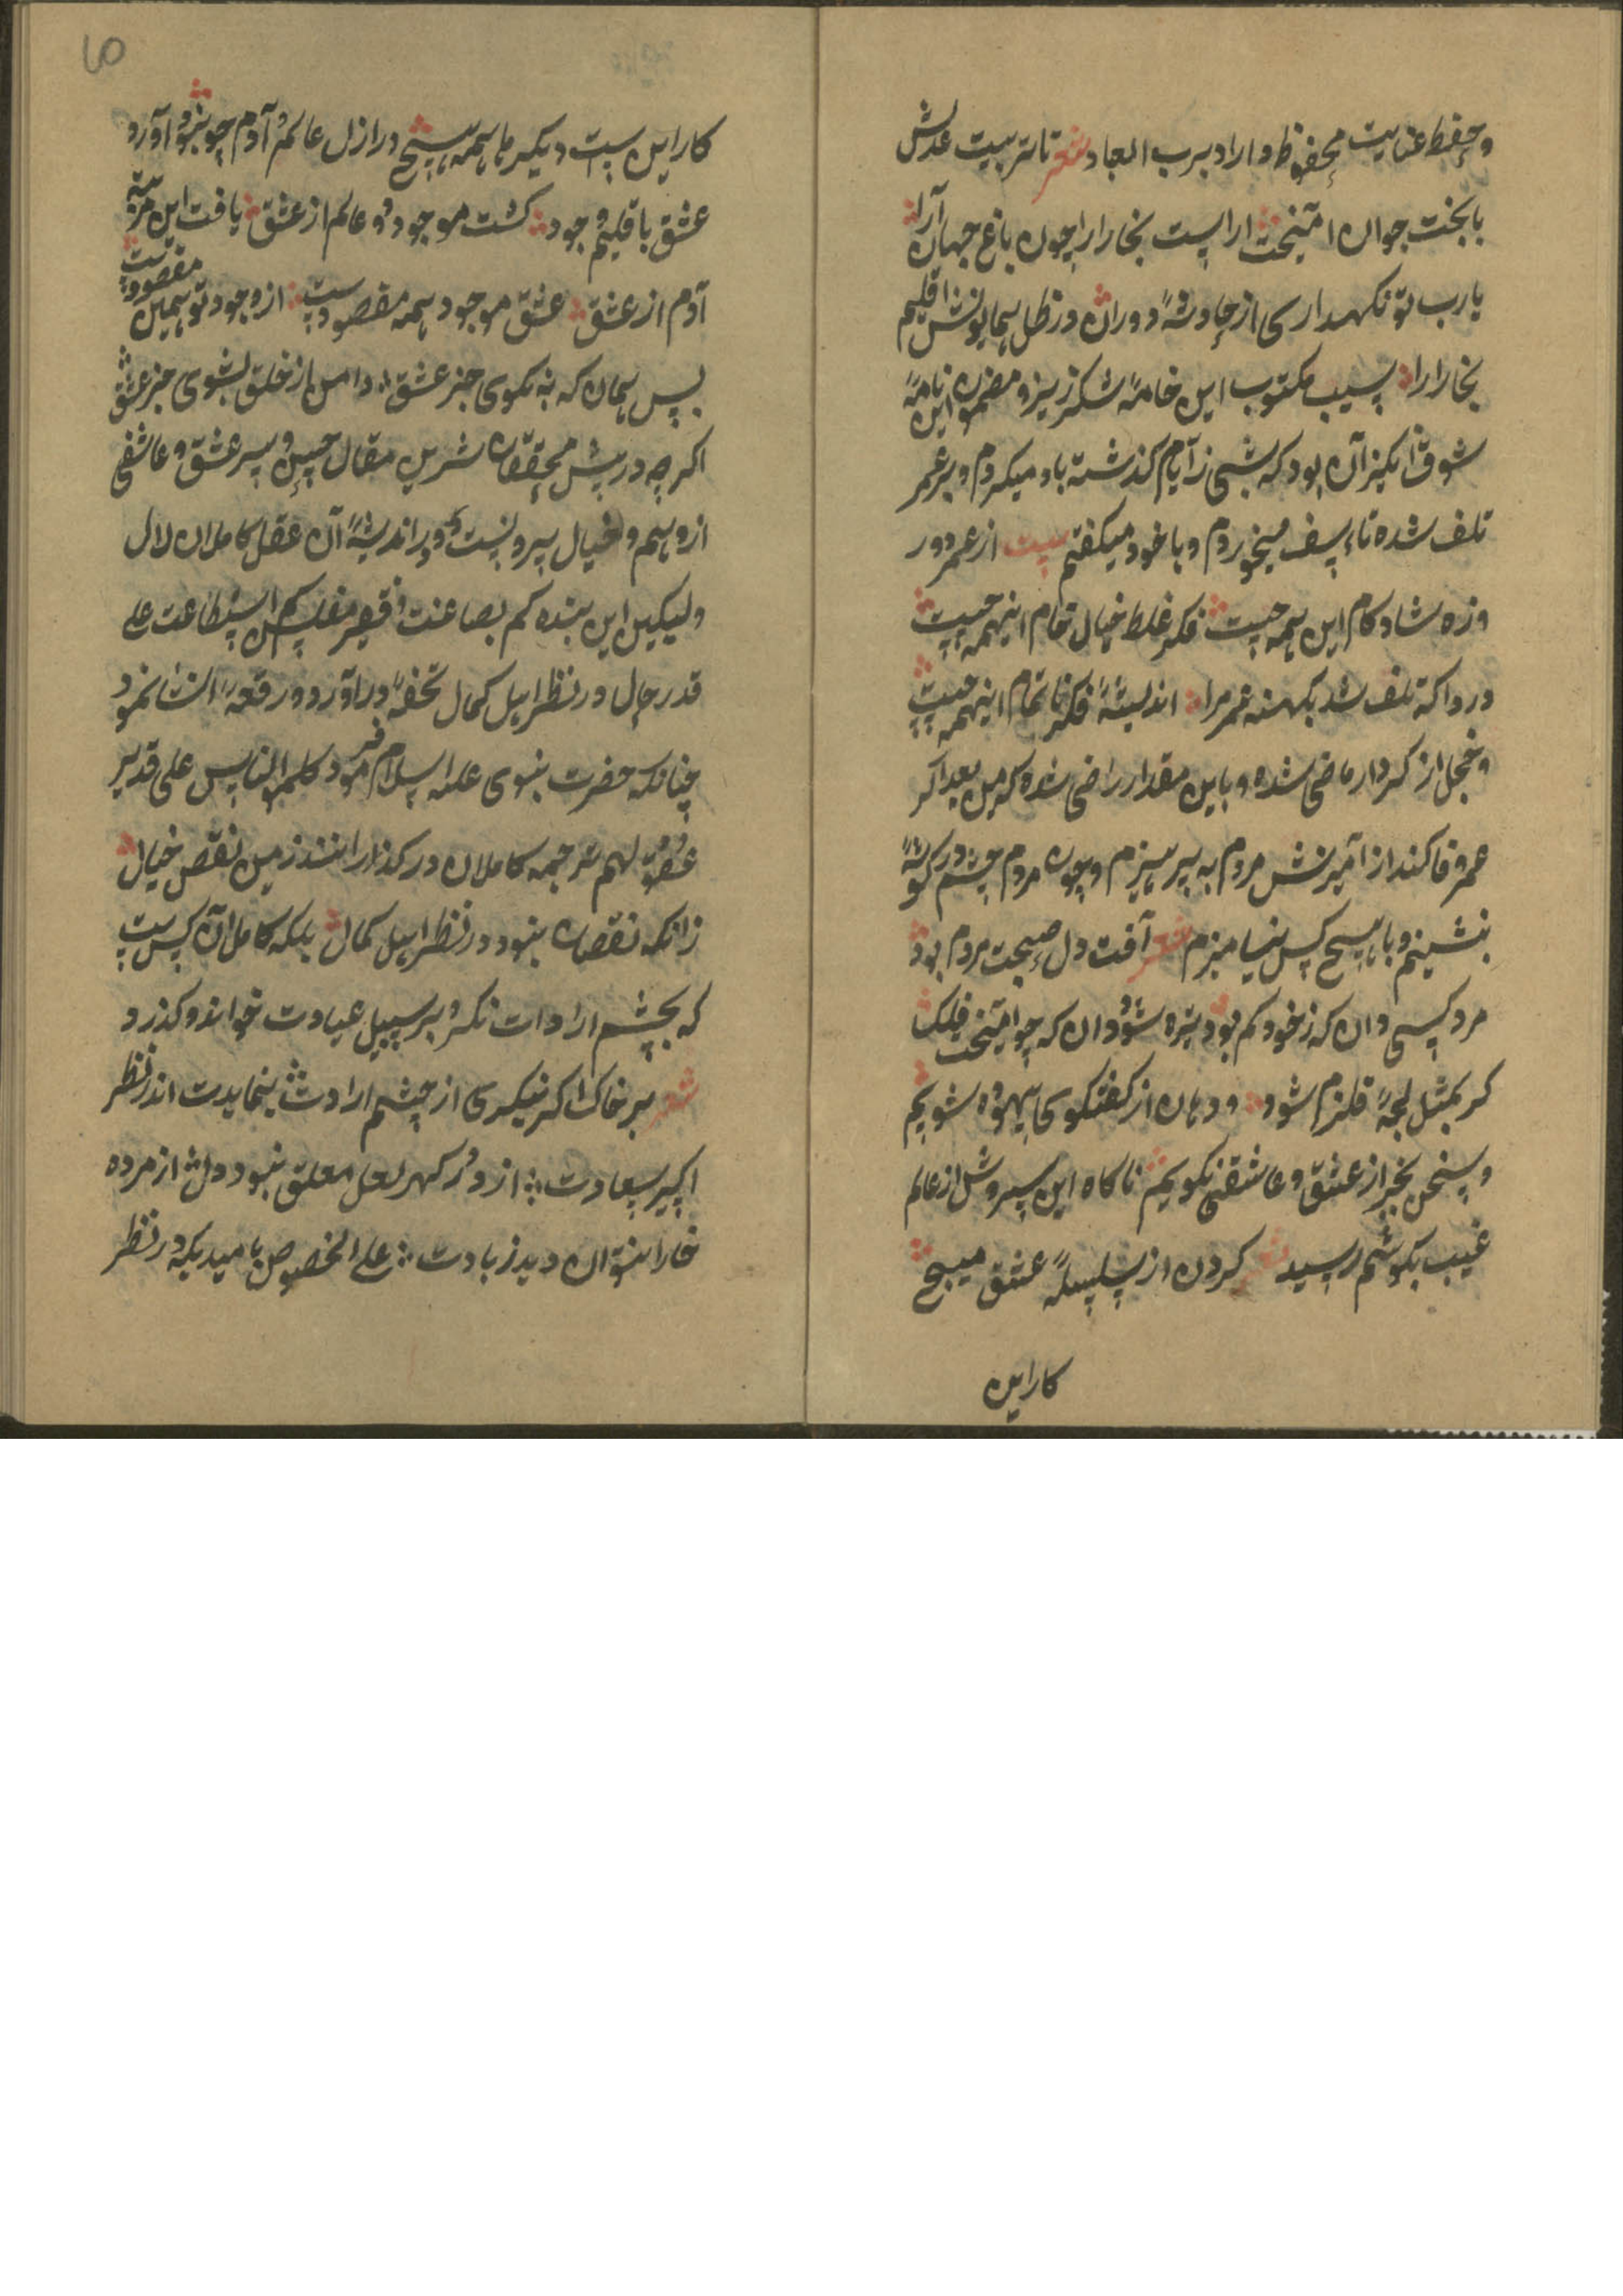 وحفظ عنایت محفوظ داراد برب العباد شعر تا تربیت عدلش
با بخت جوان امیخت اراست بخارارا چون باغ جهان آرا
یارب تو نکهداری از حادثهٔ دوران در ظل همایونش اقلیم
بخارارا سبب مکتوب این خامهٔ شکرریز و مضمون این نامهٔ
شوق انکیز آن بود که شبی ز آیام کذشته یاد میکردم و بر عمر
تلف شده تاءسف میخوردم و با خود میکفتم بیت از عمر دو
روزه شاد کام این همه چیست فکر غلط خیال خام اینهمه چیست
دردا که تلف شد بکهنه عمر مرا اندیشهٔ فکر ناتمام اینهمه چیست
و خجل از کردار ماضی شده و باین مقدار راضی شده که من بعد اکر
عمر وفا کند از آمیزش مردم به پرهیزم و چون مردم چشم در کوشهٔ
بنشینم و با هیچ کس نیامیزم شعر آفت دل صحبت مردم بود
مرد کسی دان که ز خود کم بود تیره شود دان که چو امیخت فلک
کر بمثل لجهٔ قلزم شود ودهان از کفتکوی بیهوده شویم
وسخن بجز از عشق و عاشقی نکویم ناکاه این سروش از عالم
غیب بکوشم رسید شعر کردن از سلسلهٔ عشق مپیچ
کار این
کار این ست دیکر ها همه هیچ در ازل عالم و آدم چو نبود آورد
عشق باقلیم وجود کشت موجود دو عالم از عشق یافت این مرتبه
آدم از عشق عشق موجود همه مقصودست از وجود تو همین
مقصودست
پس همان که نه نکوی جز عشق دامن از خلق بشوی جز عشق
اکرچه در پیش محققان شرین مقال حسن و سر عشق و عاشقی
از وهم و خیال بیرونست و در اندیشهٔ آن عقل کاملان لال
ولیکین این بنده کم بضاعت و فقیر مفلس کم استطاعت علی
قدر حال در نظر اهل کمال تحفهٔ در آورد و رقعهٔ انشا نمود
چنانکه حضرت نبوی علیه السلام فرمود کلمو الناس علی قدر
عقولهم ترجمه کاملان در کذرانند ز من نقص خیال
زانکه نقصان نبود در نظر اهل کمال بلکه کامل آن کس ست
که بچشم ارادات نکرد بر سبیل عیادت خواند و کذرد
شعر بر خاک اکر نیکری از چشم ارادت ینماید اندر نظر
اکسیر سعادت از در کهر لعل معلق نبود دل از مرده
خارا نتوان دید زیادت علی الخصوص بامیدیکه در نظر